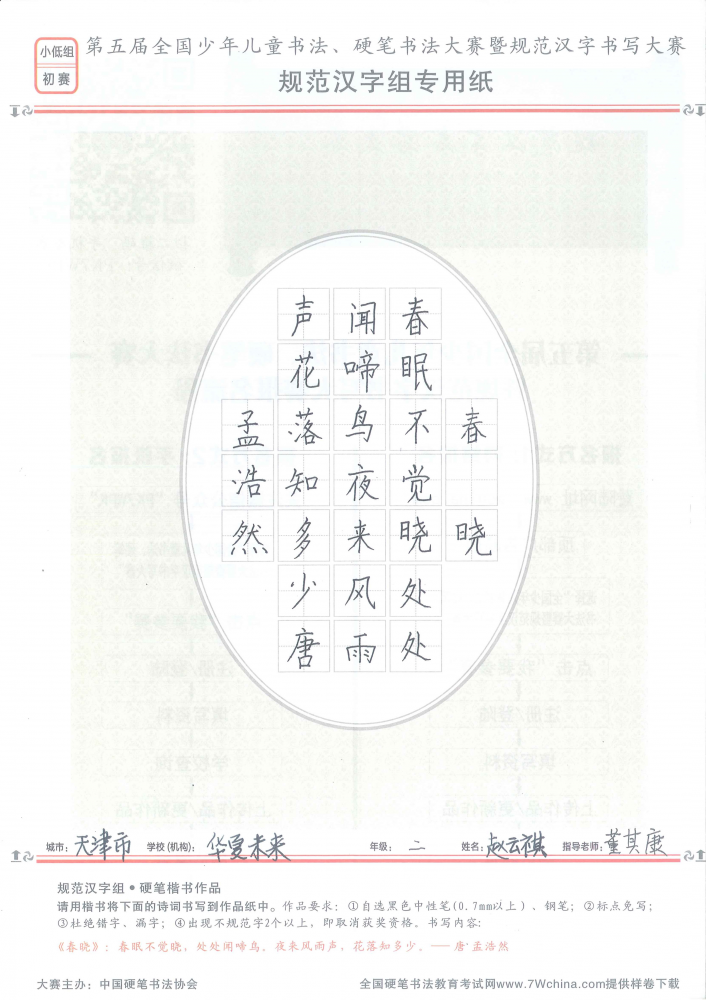 小低组
初赛
第五届全国少年儿童书法、硬笔书法大赛暨规范汉字书写大赛
规范汉字组专用纸
春晓
春眠不觉晓处处
闻啼鸟夜来风雨
声花落知多少唐
孟浩然
城市：天津市 学校(机构)：华夏未来 年级：二 姓名：赵云祺 指导老师：董其康
规范汉字组·硬笔楷书作品
请用楷书将下面的诗词书写到作品纸中。作品要求：①自选黑色中性笔(0.7mm以上)、钢笔；②标点免写；
③杜绝错字、漏字；④出现不规范字2个以上，即取消获奖资格。书写内容：
《春晓》：春眠不觉晓，处处闻啼鸟。夜来风雨声，花落知多少。—— 唐·孟浩然
大赛主办：中国硬笔书法协会
全国硬笔书法教育考试网www.7Wchina.com提供样卷下载